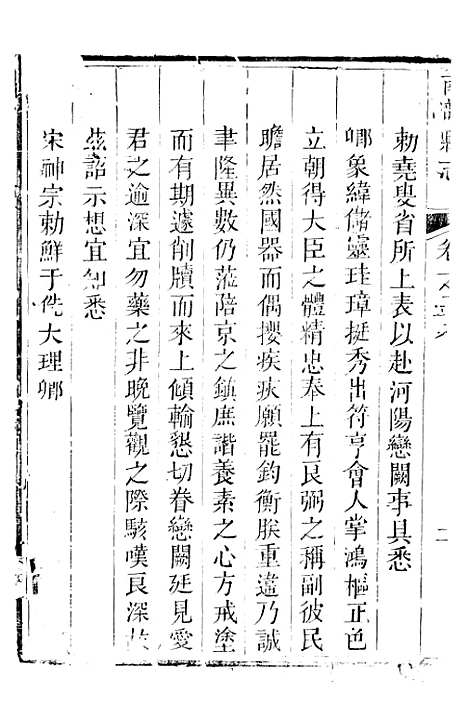 勅堯叟省所上表以赴河陽戀闕事具悉
卿象緯儲靈珪璋挺秀出符亨會人掌鴻樞正色
立朝得大臣之體精忠奉上有良弼之稱副彼民
瞻居然國器而偶攖疾疢願罷鈞衡朕重違乃誠
聿隆異數仍蒞陪京之鎮庶諧養素之心方戒塗
而有期遽削牘而來上傾輸懇切眷戀闕廷見愛
君之逾深宜勿藥之非晚覽觀之際駭嘆良深故
茲詔示想宜知悉
宋神宗勅鮮于侁大理卿